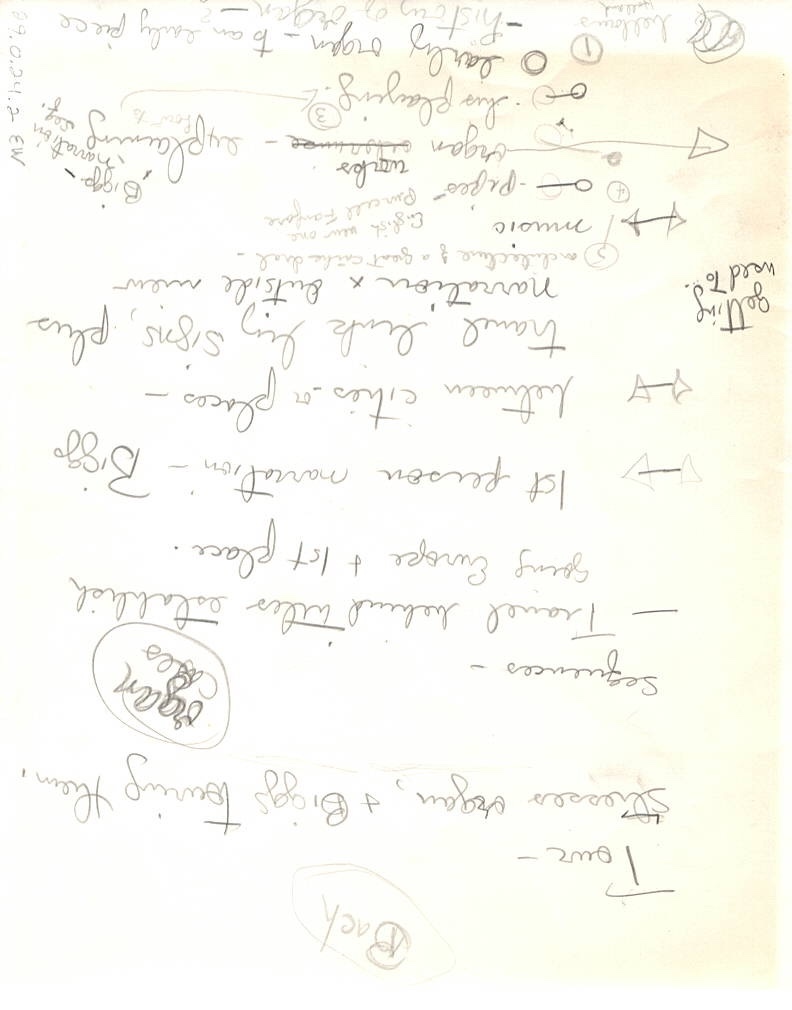 Bach
Tour -
Stresses organ, + Biggs touring them.
organ
cases
Sequences -
— Travel behind titles establish
going Europe + 1st place.
1st person narration - Biggs
between cities or places -
travel link by signs, plus
narration x outside view
getting
need to..
② architecture of a great cathedral -
music
English new one
Purcell Fanfare
④ pipes -
Biggs -
narration
organ works - explaining seq.
how to
③
his playing.
① early organ - to an early piece
- history of organ -
bellows
29.0.24.2 EW